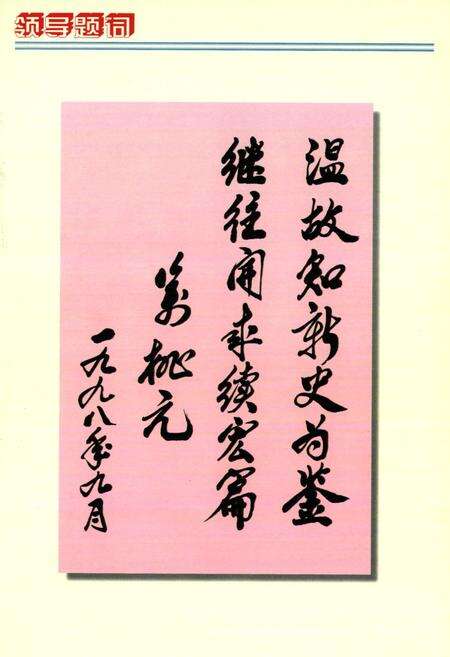 领导题词
温故知新史为鉴
继往开来续宏篇
姜桃元
一九九八年九月